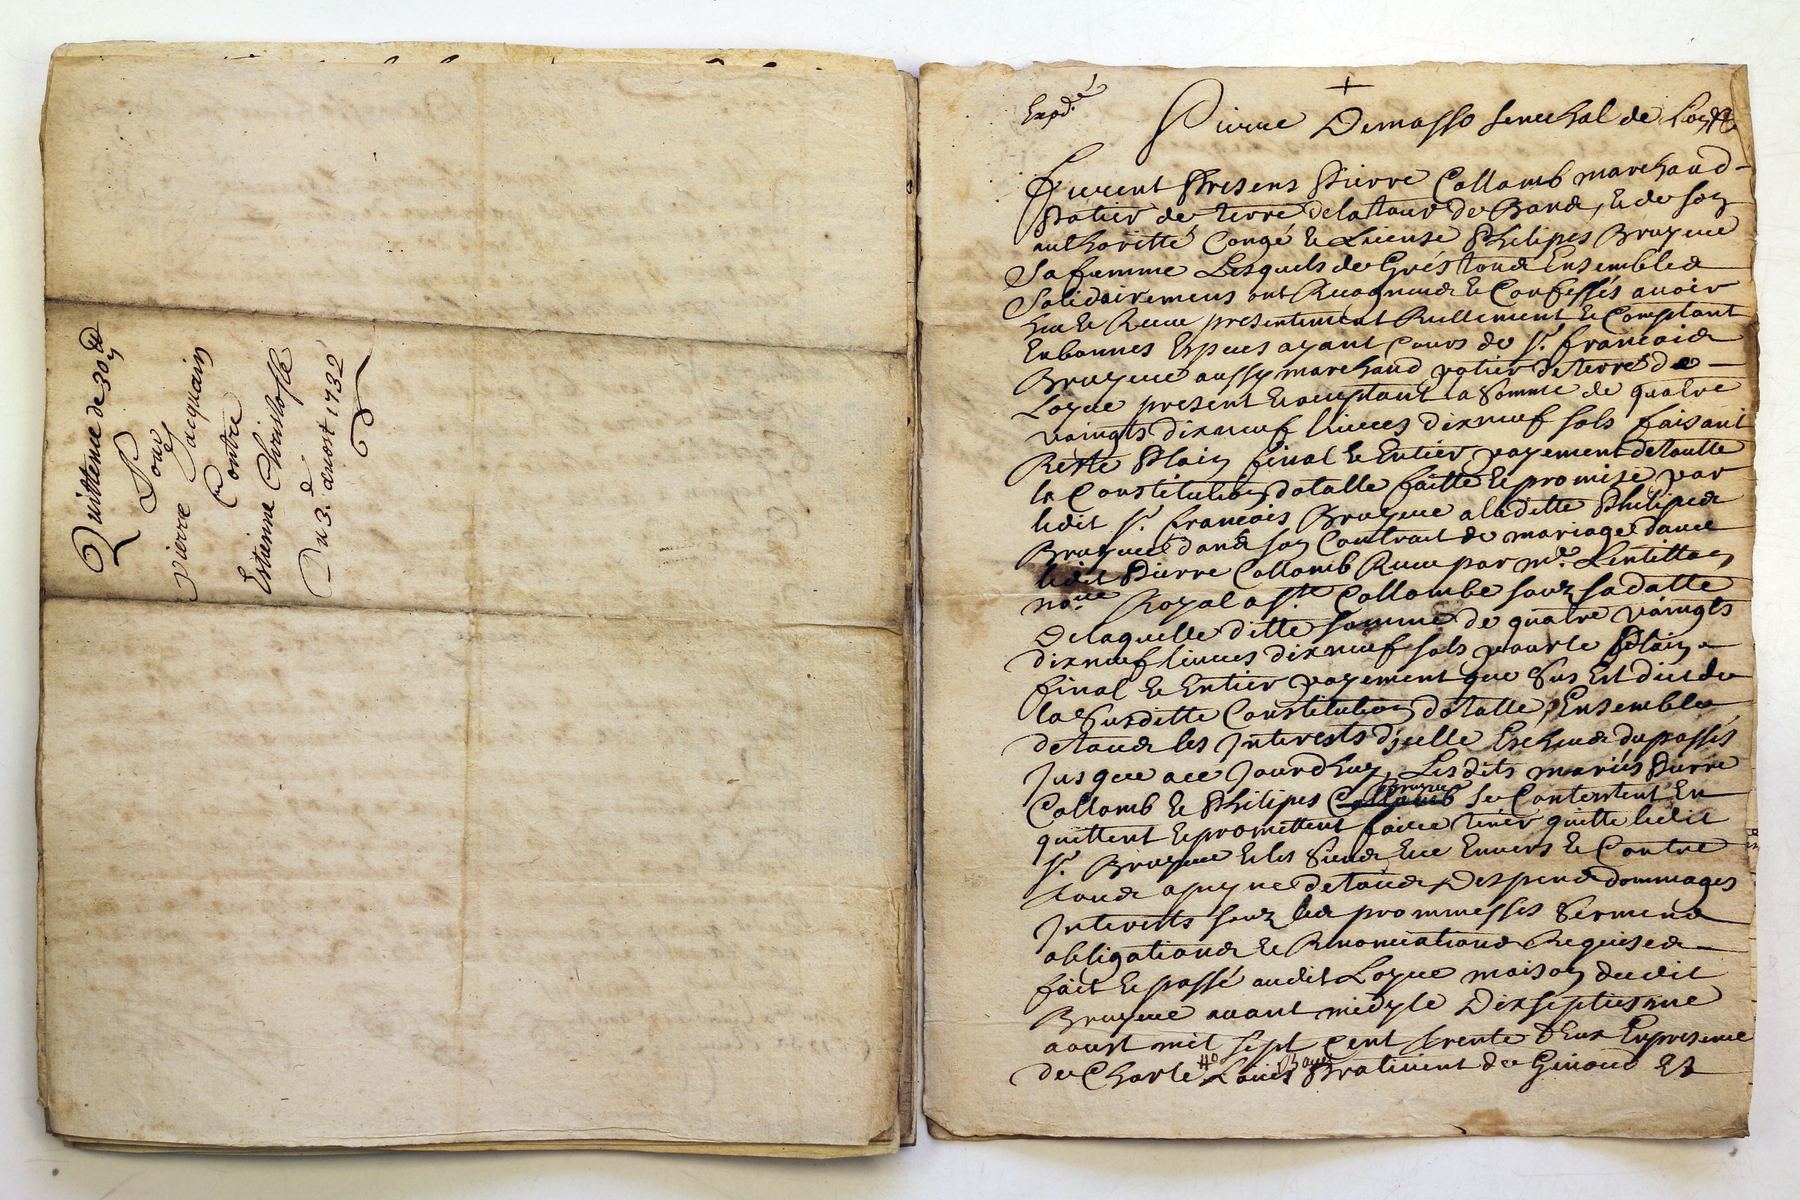 Quittence de 30 ₶
Pour
pierre Jacquain
Contre
Estienne Christofle
Du 3.e Aoust 1732
Exped.é
Pierre Demasso senechal de Lyon
Furent Presens Pierre Collomb marchand
Potier de terre de la tour de Bands, & de son
authoritté Congé & License Philipes Bruyeue
Sa femme Lesquels de Grés tous Ensembles
Solidairemens ont Recognus & Confessés auoir
heu & Receu presentement Reellement & Comptant
En bonnes Especes ayant Cours de Sr. francois
Bruyeue aussy marchand potier de terre de
Loyeue present & aceptant la Somme de quatre
vaingts dixneuf liures dixneuf sols faisant
Reste Plain final & Entier payement de toutte
la Constitution dotalle faitte & promise par
ledit Sr. francois Bruyeue a laditte Philipes
Bruyeue dans son Contract de mariage dauec
ledit Pierre Collomb Receu par me. Lentillon
nore. Royal a Ste. Collombe souz sa datte
De laquelle ditte somme de quatre vaingts
dixneuf liures dixneuf sols pour le Plain
final & Entier payement que Sus Est dict de
la Susditte Constitution dotalle, Ensembles
de tous les Interests d'icelle Escheus du passés
Jusque a ce Jourdhuy Lesdits mariés Pierre
Collomb & Philipes Bruyeue Se Contentent En
quittent & promettent faire tenir quitte ledit
Sr. Bruyeue & les Siens Enuers & Contre
tous a peyne de tous Despens dommages
Interests souz les prommesses Sermens
obligations & Renonciations Requises
fait & passé audit Loyeue maison dudit
Bruyeue auant midy le Dixseptiesme
aoust mil sept Cent trente deux En presence
de Charle Louis Pratiuent de Ginoud Et